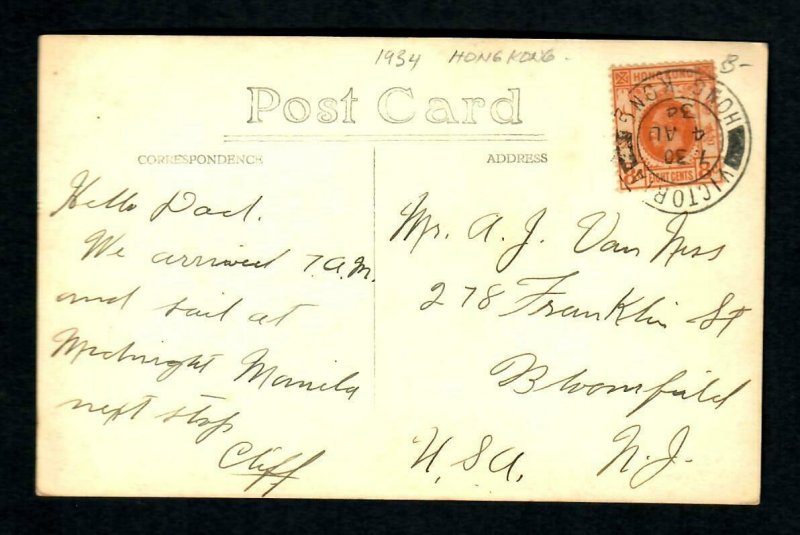 1934 HONG KONG - B-
Post Card
CORRESPONDENCE
ADDRESS
HONG KONG
EIGHT CENTS
VICTORIA HONG KONG
7 30
4 AU
34
Hello Dad.
We arrived 7 A.M.
and sail at
Midnight Manila
next stop
Cliff
Mr. A. J. Van Ness
278 Franklin St
Bloomfield
N.J.
U.S.A.